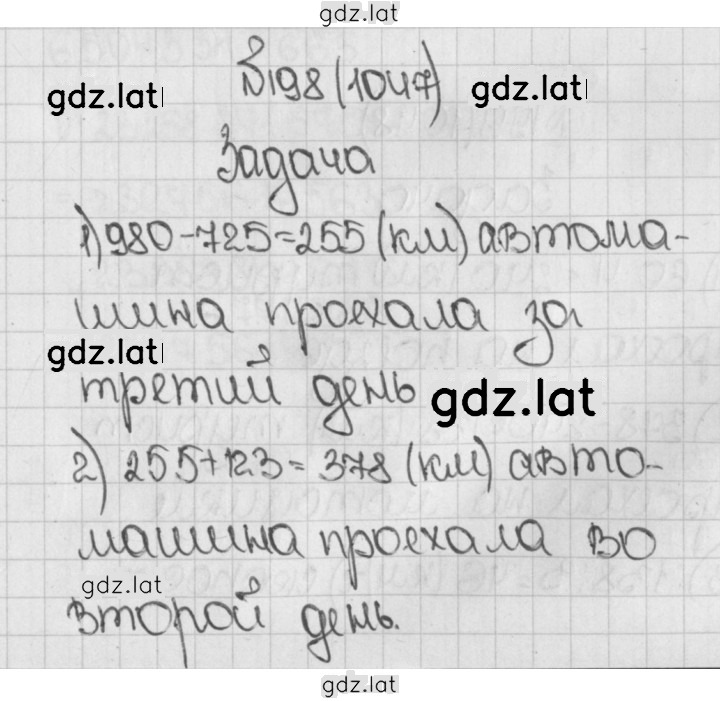 gdz.lat
№198 (1047)
gdz.lat gdz.lat
Задача
1) 980-725=255 (км) автома-
шина проехала за
gdz.lat
третий день
gdz.lat
2) 255+123=378 (км) авто-
машина проехала во
gdz.lat
второй день.
gdz.lat